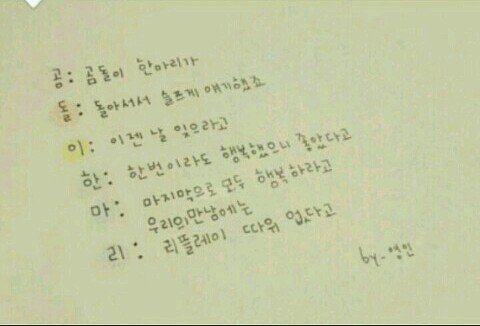 곰: 곰돌이 한마리가
돌: 돌아서서 슬프게 얘기했죠
이: 이젠 날 잊으라고
한: 한번이라도 행복했으니 좋았다고
마: 마지막으로 모두 행복하라고
우리의만남에는
리: 리플레이 따위 없다고
by-영인